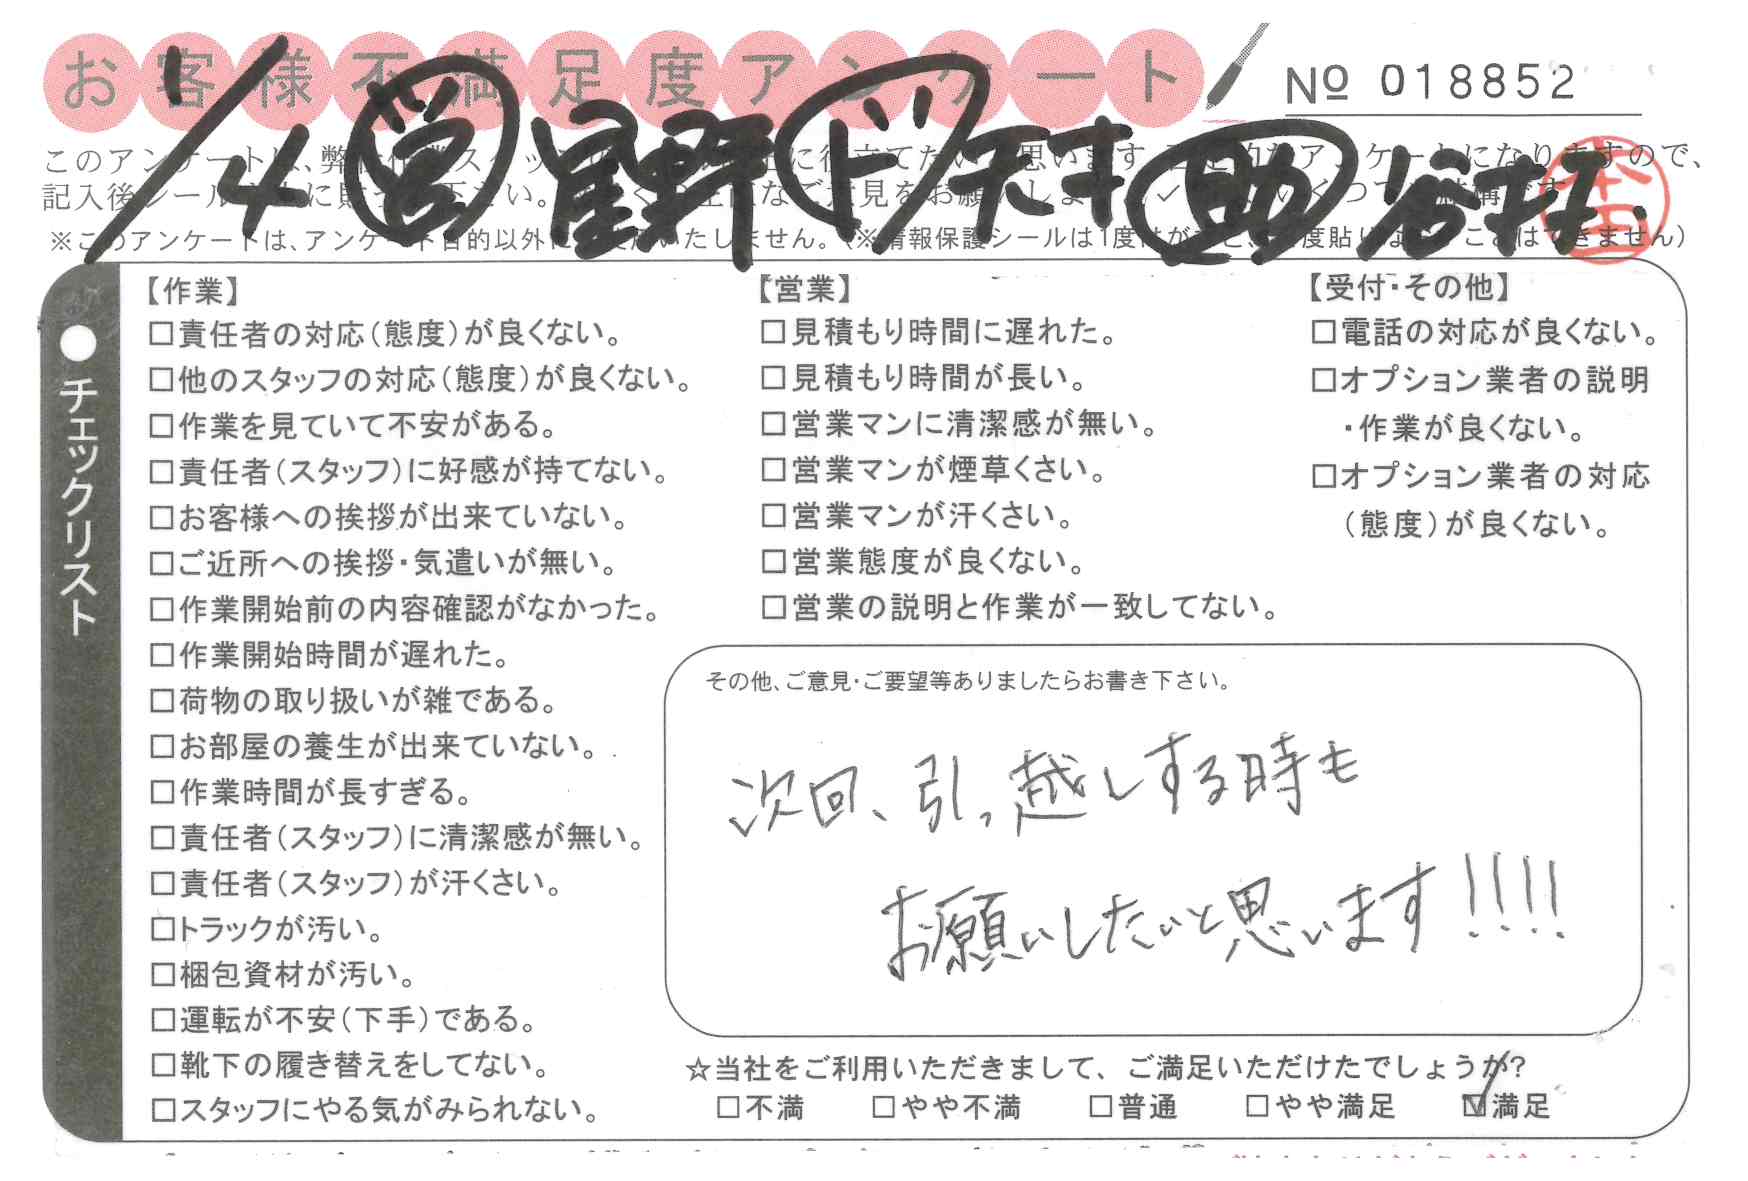 お客様不満足度アンケート
№ 018852
1/4 営 星野 ド 天才 助 谷村
本田
このアンケートは、弊社作業スタッフの
に役立てたい
思います
アンケートになりますので、
記入後シール
に貼
下さい。
なご意見をお願いします
※このアンケートは、アンケート目的以外に
いたしません。(※情報保護シールは1度はがすと、
ことはできません)
チェックリスト
【作業】
□責任者の対応(態度)が良くない。
□他のスタッフの対応(態度)が良くない。
□作業を見ていて不安がある。
□責任者(スタッフ)に好感が持てない。
□お客様への挨拶が出来ていない。
□ご近所への挨拶・気遣いが無い。
□作業開始前の内容確認がなかった。
□作業開始時間が遅れた。
□荷物の取り扱いが雑である。
□お部屋の養生が出来ていない。
□作業時間が長すぎる。
□責任者(スタッフ)に清潔感が無い。
□責任者(スタッフ)が汗くさい。
□トラックが汚い。
□梱包資材が汚い。
□運転が不安(下手)である。
□靴下の履き替えをしてない。
□スタッフにやる気がみられない。
【営業】
□見積もり時間に遅れた。
□見積もり時間が長い。
□営業マンに清潔感が無い。
□営業マンが煙草くさい。
□営業マンが汗くさい。
□営業態度が良くない。
□営業の説明と作業が一致してない。
【受付・その他】
□電話の対応が良くない。
□オプション業者の説明
・作業が良くない。
□オプション業者の対応
(態度)が良くない。
その他、ご意見・ご要望等ありましたらお書き下さい。
次回、引っ越しする時も
お願いしたいと思います!!!!
☆当社をご利用いただきまして、ご満足いただけたでしょうか?
□不満 □やや不満 □普通 □やや満足 ☑満足